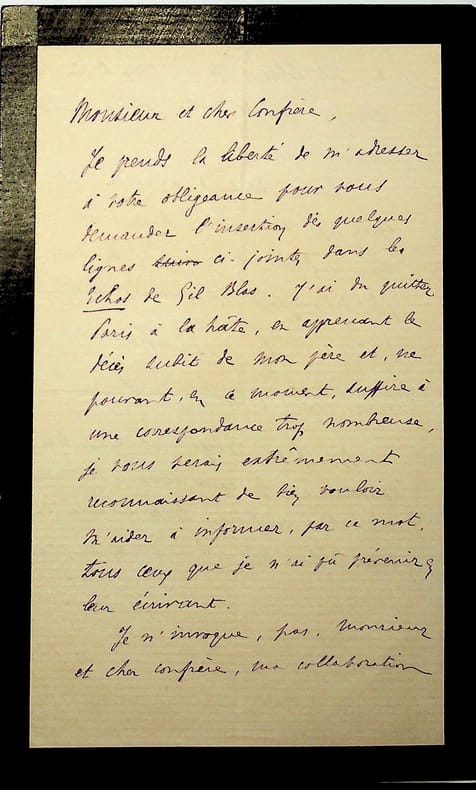 Monsieur et cher Confrère,
Je prends la liberté de m'adresser
à votre obligeance pour vous
demander l'insertion des quelques
lignes suiva ci-jointes dans les
Echos de Gil Blas. J'ai du quitter
Paris à la hâte, en apprenant le
décès subit de mon père et, ne
pouvant, en ce moment, suffire à
une correspondance trop nombreuse,
je vous serais extrêmement
reconnaissant de bien vouloir
m'aider à informer, par ce mot,
tous ceux que je n'ai pû prévenir en
leur écrivant.
Je n'invoque, pas, monsieur
et cher confrère, ma collaboration